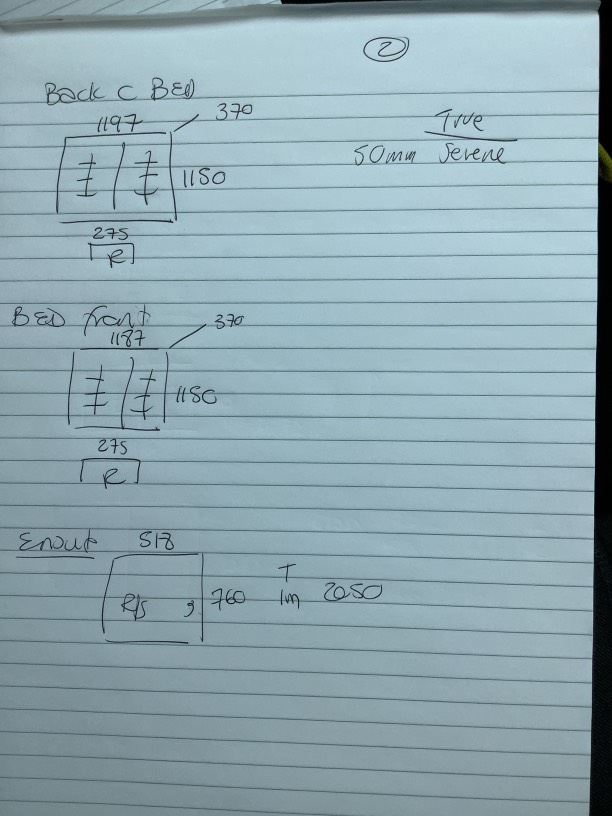 2
Back C BED
1197 370
True
50mm Serene
1150
275
R
BED front
1187 370
1150
275
R
518
R/S 760
T
1m 2050